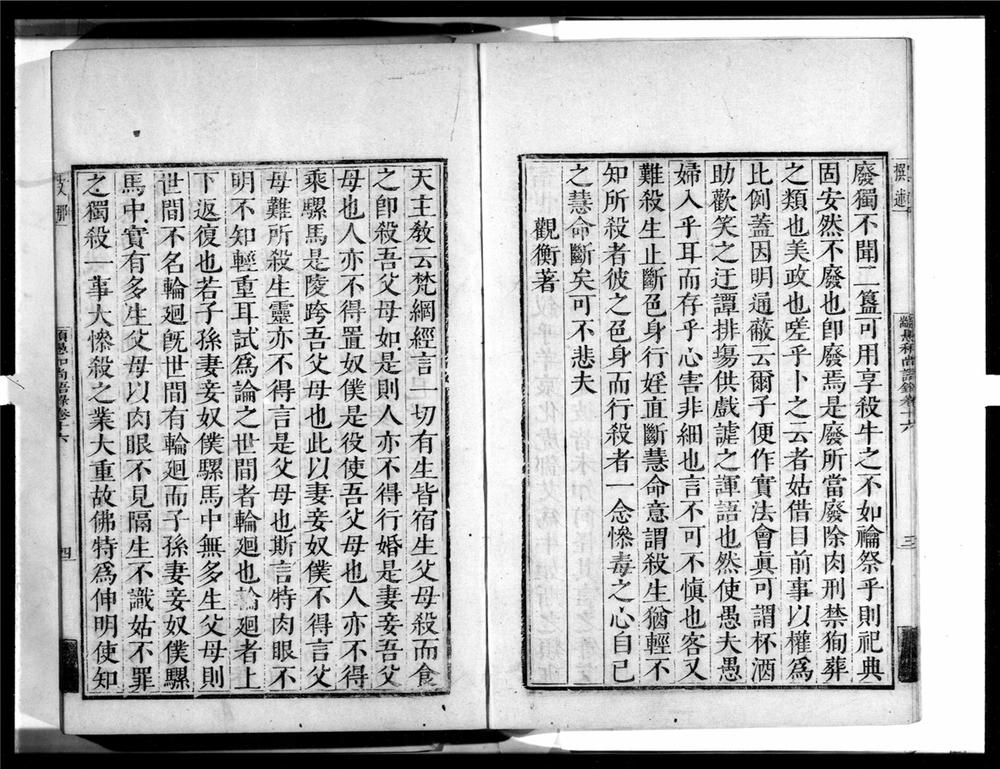 廢獨不聞二簋可用享殺牛之不如禴祭乎則祀典
固安然不廢也卽廢焉是廢所當廢除肉刑禁狥葬
之類也美政也嗟乎卜之云者姑借目前事以權爲
比例蓋因明通蔽云爾子便作實法會真可謂杯酒
助歡笑之迂譚排塲供戲謔之諢語也然使愚夫愚
婦入乎耳而存乎心害非細也言不可不愼也客又
難殺生止斷色身行婬直斷慧命意謂殺生猶輕不
知所殺者彼之色身而行殺者一念慘毒之心自己
之慧命斷矣可不悲夫
觀衡著
三
天主敎云梵網經言一切有生皆宿生父母殺而食
之卽殺吾父母如是則人亦不得行婚是妻妾吾父
母也人亦不得置奴僕是役使吾父母也人亦不得
乘騾馬是陵跨吾父母也此以妻妾奴僕不得言父
母難所殺生靈亦不得言是父母也斯言特肉眼不
明不知輕重耳試爲論之世間者輪廻也輪廻者上
下返復也若子孫妻妾奴僕騾馬中無多生父母則
世間不名輪廻旣世間有輪廻而子孫妻妾奴僕騾
馬中實有多生父母以肉眼不見隔生不識姑不罪
之獨殺一事大慘殺之業大重故佛特爲伸明使知
四